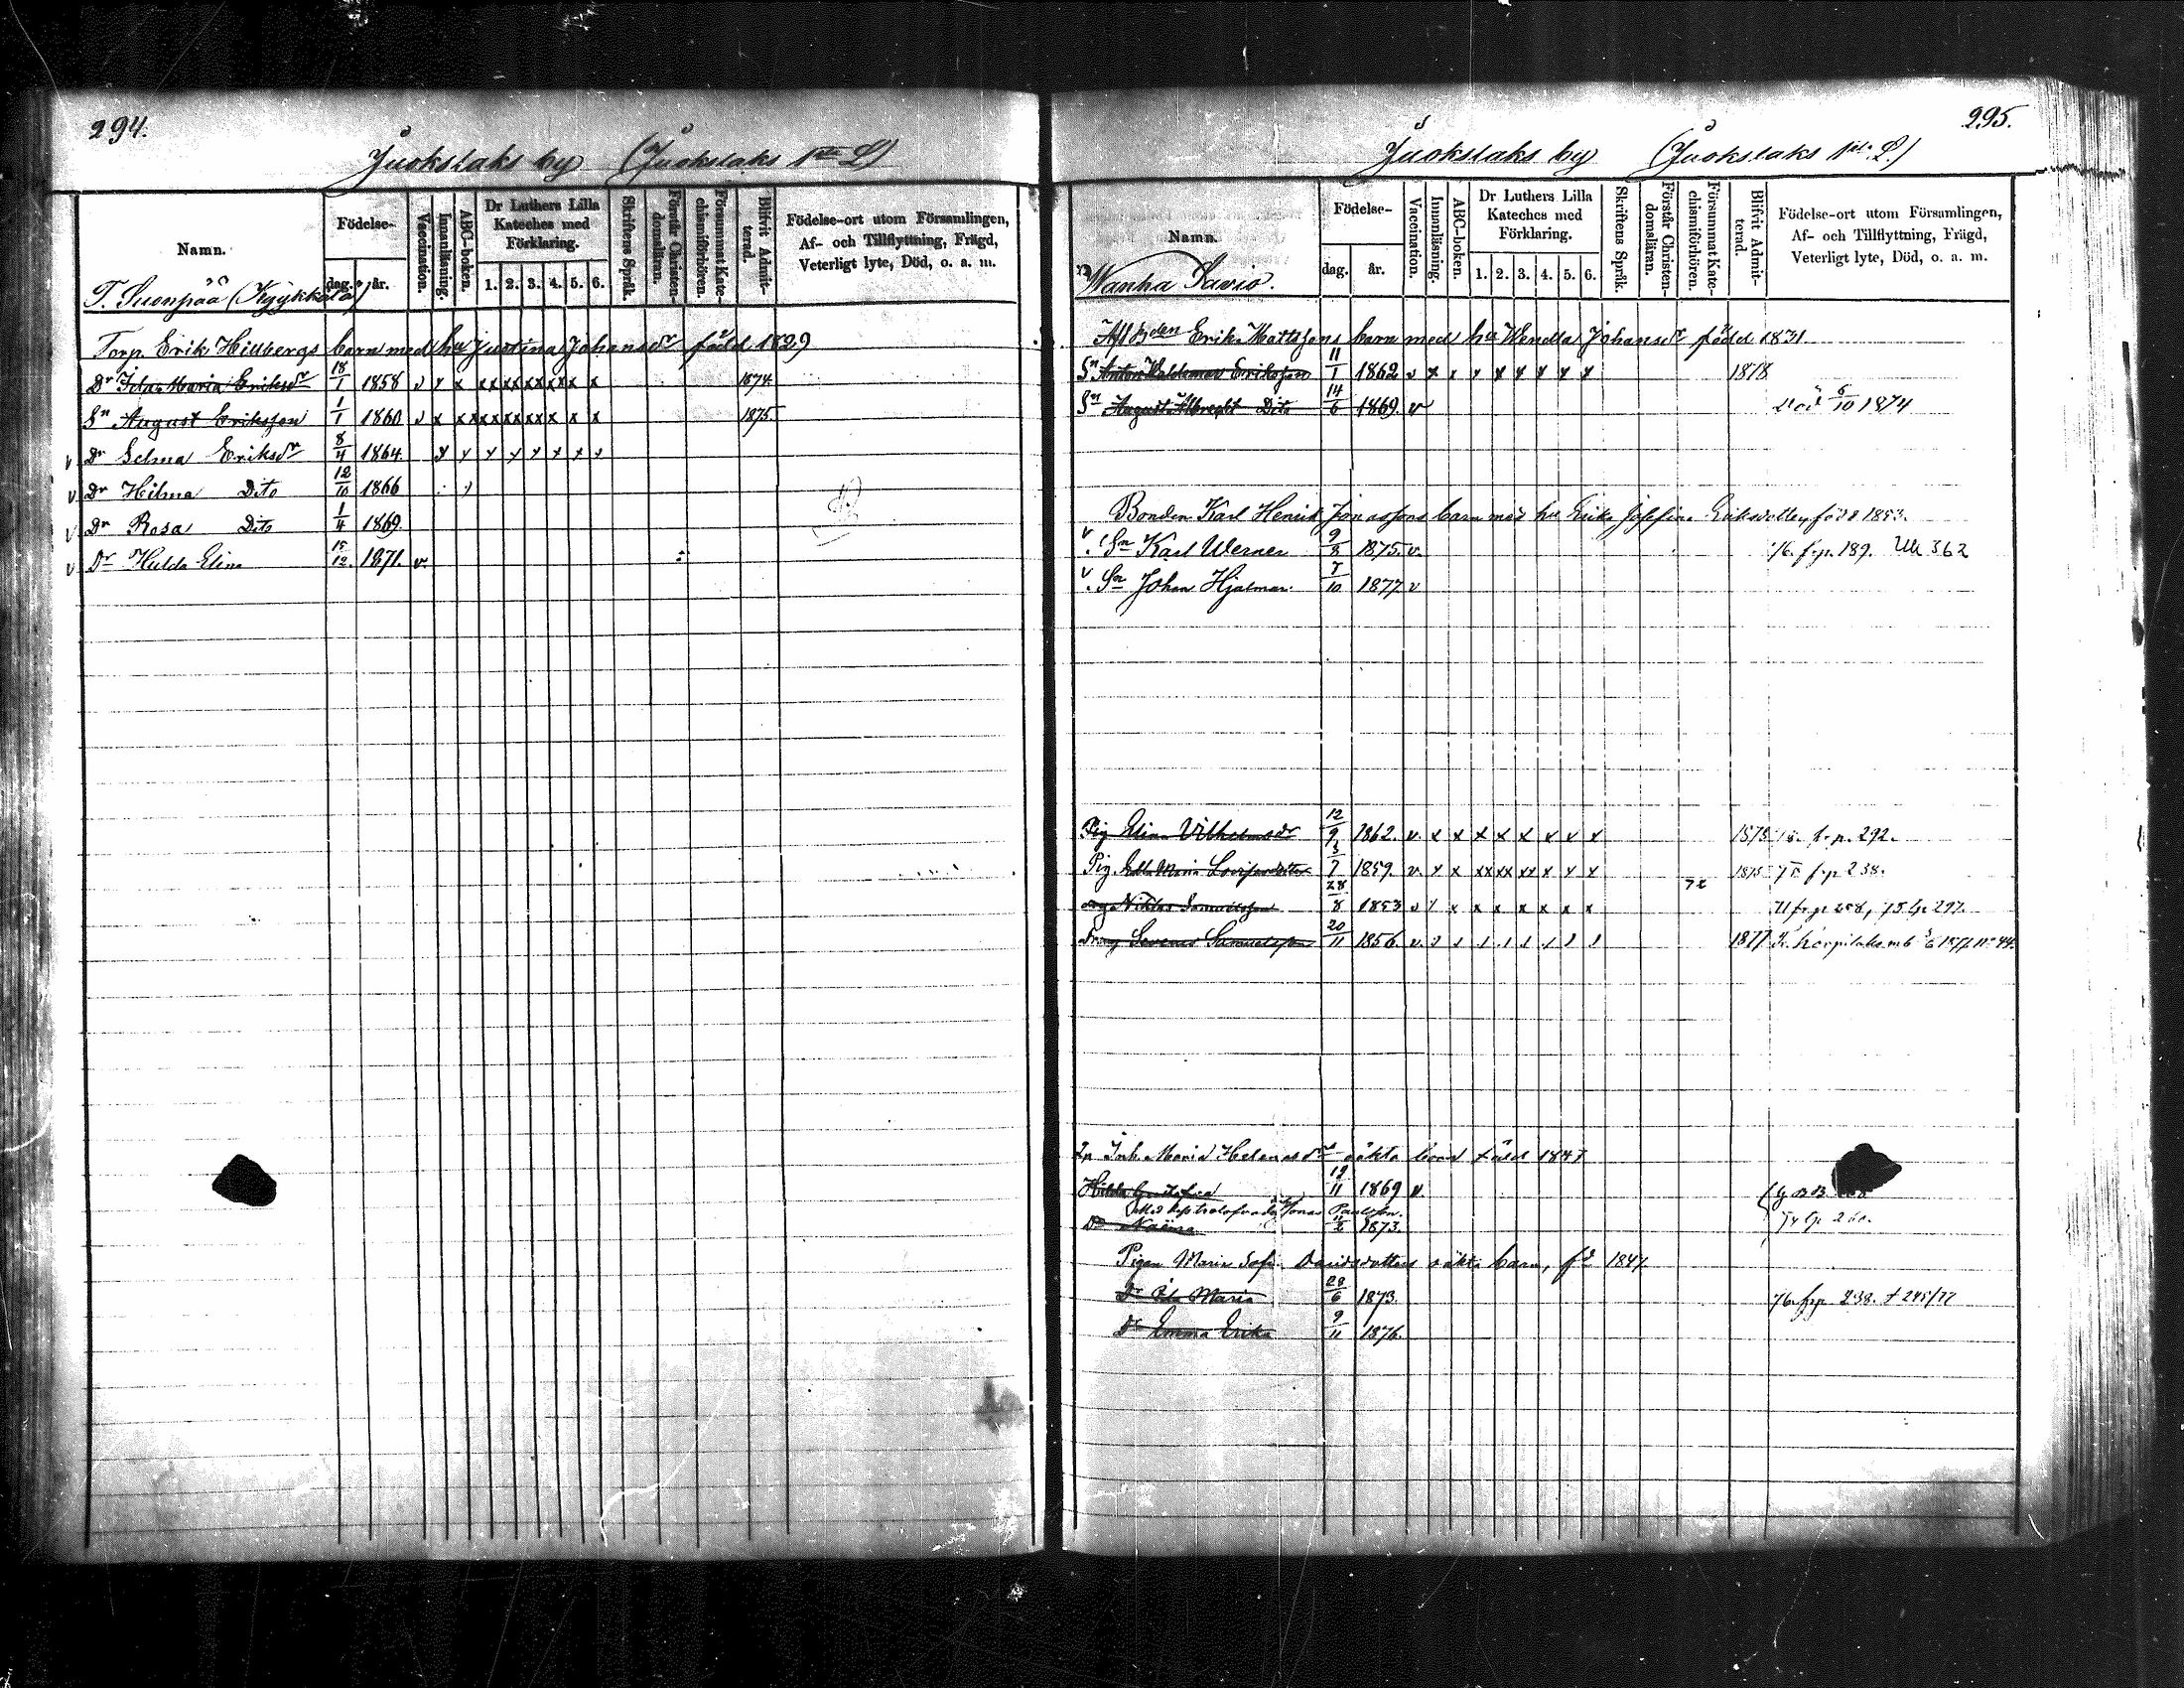 294.
Juokslaks by (Juokslaks 1sta L)
Namn.
Födelse-
dag.
år.
Vaccination.
Innanläsning.
ABC-boken.
Dr Luthers Lilla Kateches med Förklaring.
1. 2. 3. 4. 5. 6.
Skriftens Språk.
Förstår Christendomsläran.
Försummat Katechismiförhören.
Blifvit Admitterad.
Födelse-ort utom Församlingen,
Af- och Tillflyttning, Frägd,
Veterligt lyte, Död, o. a. m.
T. Suonpää
Torp. Erik Hillbergs barn med hu Justina Johansdr född 1829
Dr Ida Maria Eriksdr 18/1 1858 v x x xx xx xx xx x x 1874
Sn August Eriksson 1/1 1860 v x xx xx xx xx x x x 1875
v Dr Selma Eriksdr 8/4 1864 x x x x x x x
v Dr Hilma Dito 12/10 1866
v Dr Rosa Dito 1/4 1869
v Dr Hulda Elina 15/12 1871. v
295.
Juokslaks by (Juokslaks 1sta L.)
Namn.
Födelse-
dag.
år.
Vaccination.
Innanläsning.
ABC-boken.
Dr Luthers Lilla Kateches med Förklaring.
1. 2. 3. 4. 5. 6.
Skriftens Språk.
Förstår Christendomsläran.
Försummat Katechismiförhören.
Blifvit Admitterad.
Födelse-ort utom Församlingen,
Af- och Tillflyttning, Frägd,
Veterligt lyte, Död, o. a. m.
Wanha Savio.
Afl Bden Erik Mattssons barn med hu Wendla Johansdr född 1831
Sn Anton Waldemar Eriksson 11/1 1862 v x x x x x x x x 1878
Sn August Albregt Dito 14/6 1869 v död 6/10 1874
Bonden Karl Henrik Jonassons barn med hu Erika Josefina Eriksdotter född 1853.
v Sn Karl Werner 9/8 1875. v. 76. frp. 189. Ut 362
v Sn Johan Hjalmar 7/10 1877 v
Pig Elina Vilhelmsdr 12/9 1862. v. x x x x x x x x fr p. 292.
Pig. Edla Maria 3/7 1859. v. x x xx xx xx x x x 1875 frp 238.
Niklas Samuelsson 28/8 1853 v x x x x x x x
Dreng Severus Samuelsson 20/11 1856. v. 1877
Inh. Maria Helenasdr oäkta barn född 1847
Hilda Gustafva 12/11 1869 v
Jonas Paulsson.
Dr Naëma 11/2 1873.
Pigan Maria Sofia Davidsdotters oäkta barn, fd 1847
Dr Ida Maria 28/6 1873. 76. frp. 238.
Dr Emma Erika 9/11 1876.